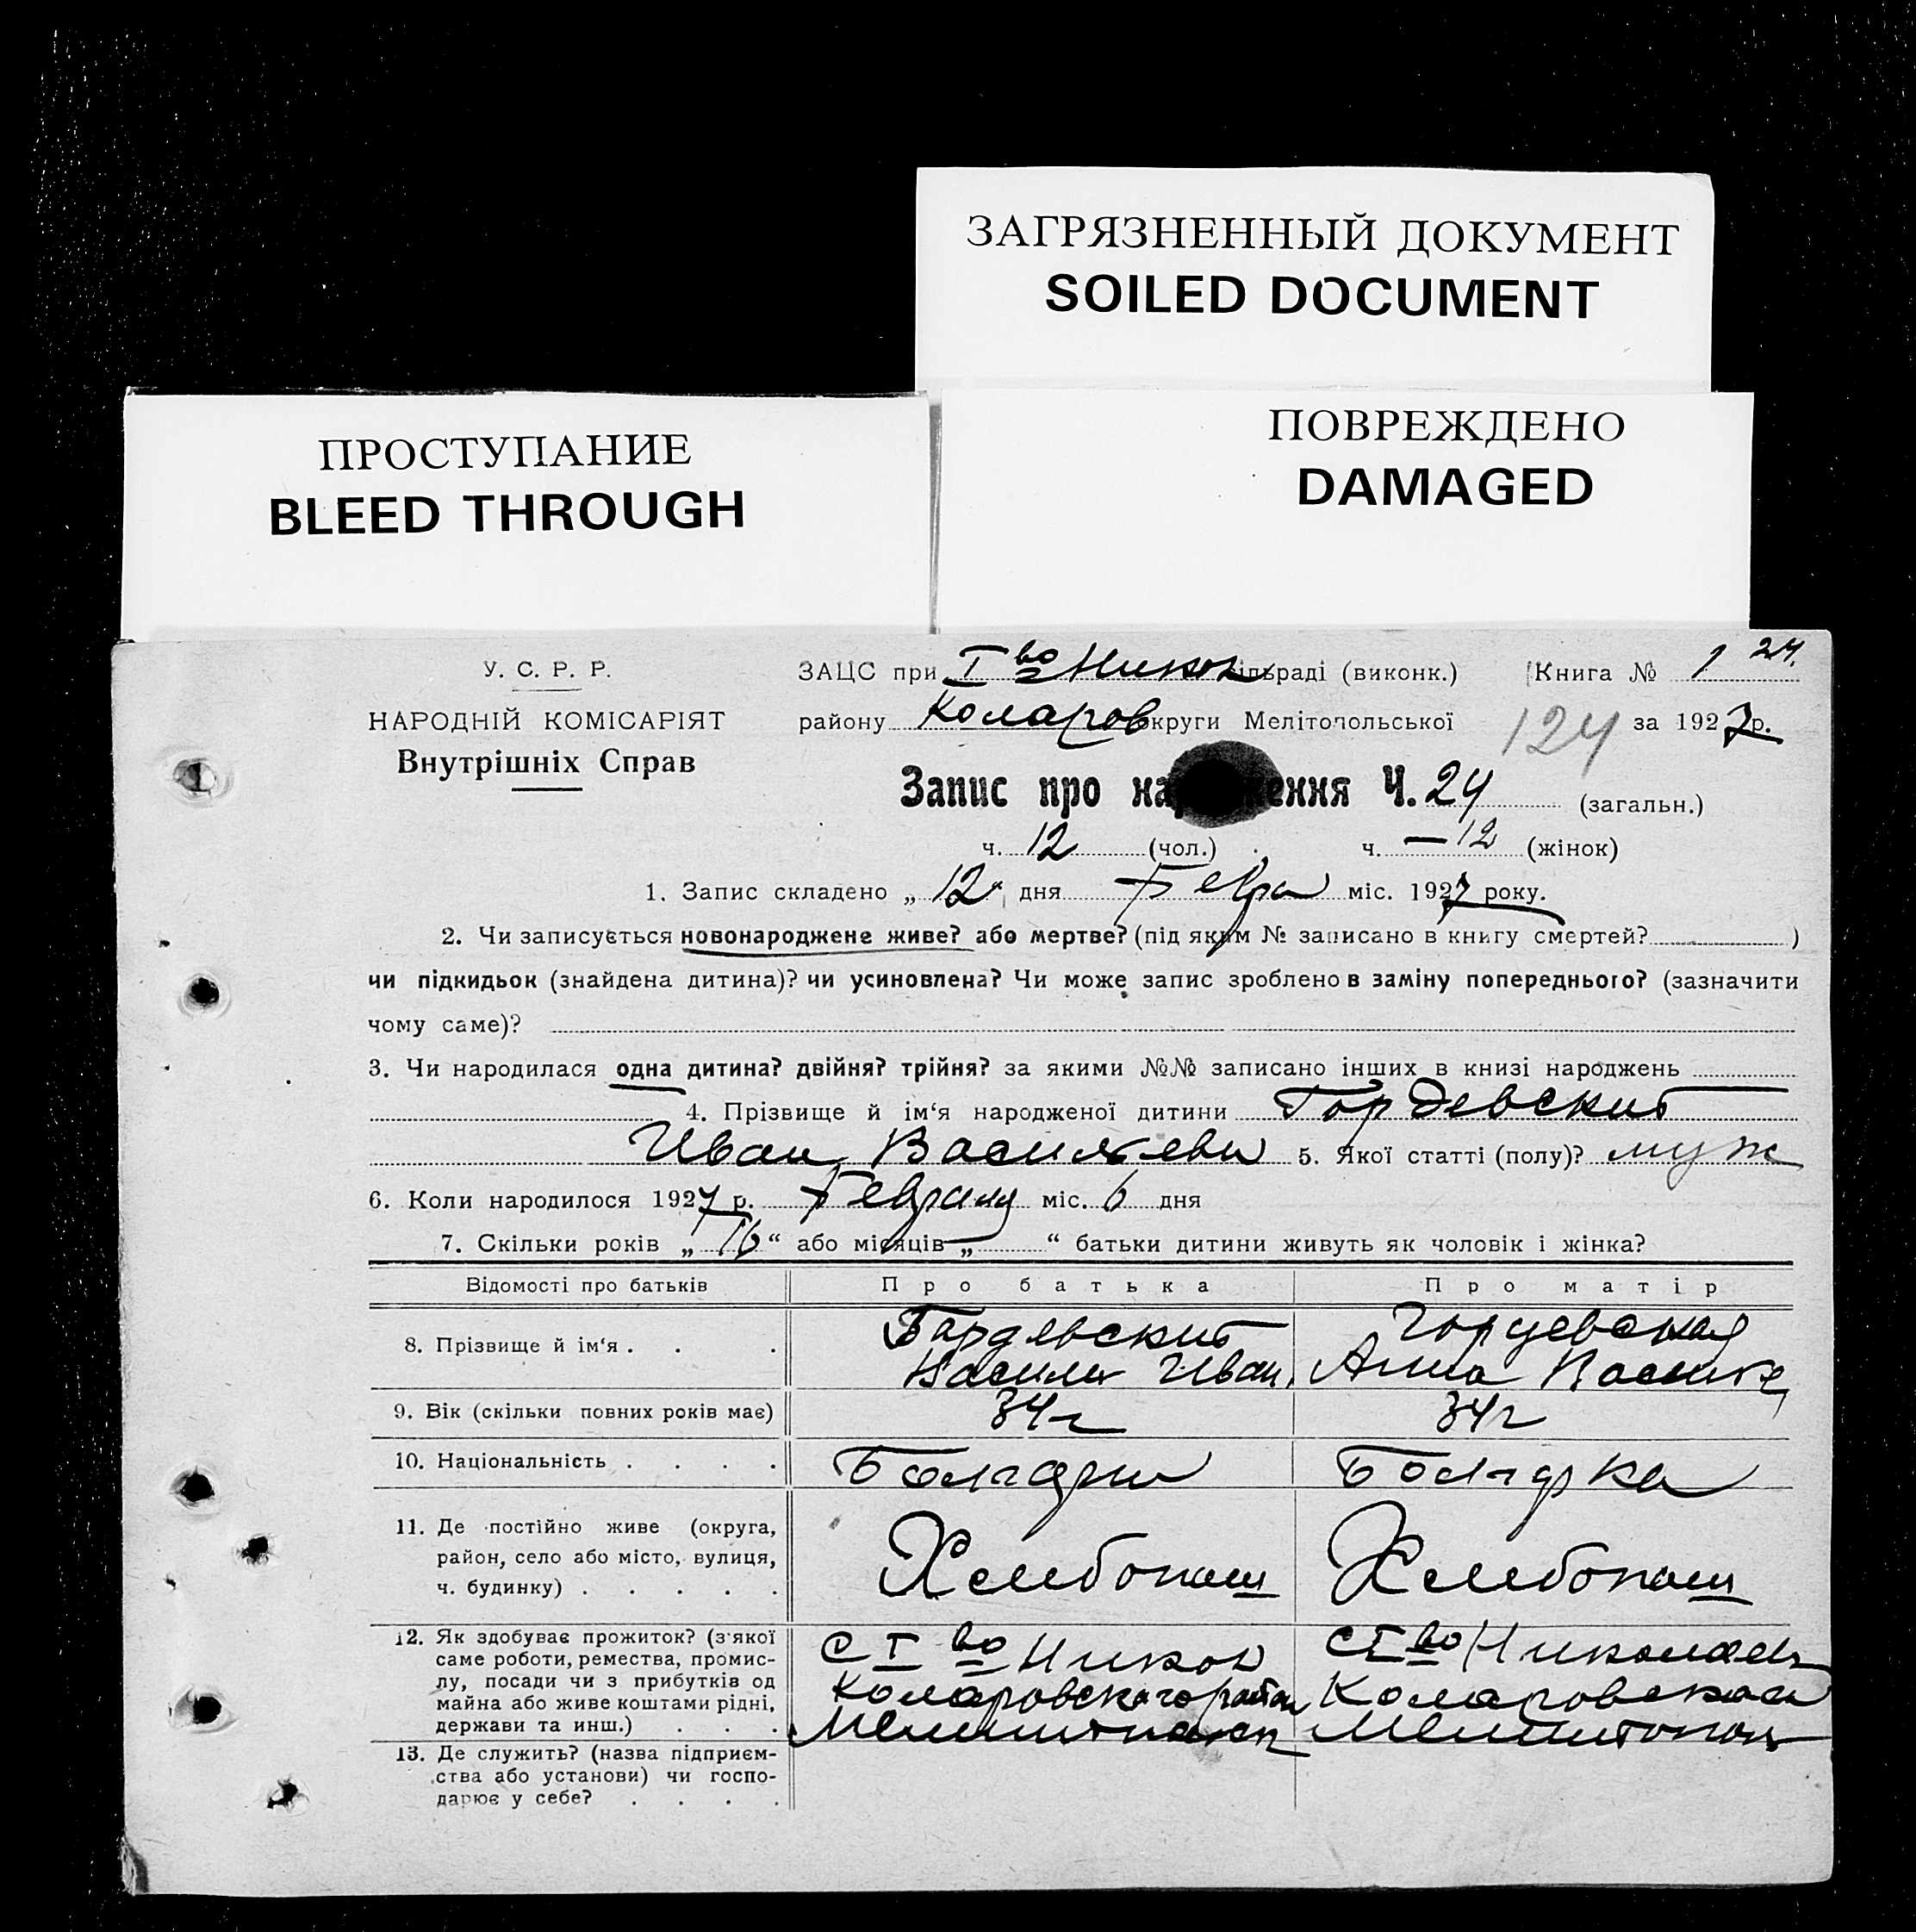 ЗАГРЯЗНЕННЫЙ ДОКУМЕНТ
SOILED DOCUMENT
ПРОСТУПАНИЕ
BLEED THROUGH
ПОВРЕЖДЕНО
DAMAGED
У. С. Р. Р.
НАРОДНІЙ КОМІСАРІЯТ
Внутрішніх Справ
ЗАЦС при Iво Никол сільраді (виконк.) Книга № 1 24.
району Коларов округи Мелітопольської 124 за 1927 р.
Запис про народження Ч. 24 (загальн.)
ч. 12 (чол.) ч. — 12 (жінок)
1. Запис складено „ 12 “ дня Февра міс. 1927 року.
2. Чи записується новонароджене живе? або мертве? (під яким № записано в книгу смертей? )
чи підкидьок (знайдена дитина)? чи усиновлена? Чи може запис зроблено в заміну попереднього? (зазначити
чому саме)?
3. Чи народилася одна дитина? двійня? трійня? за якими №№ записано інших в книзі народжень
4. Прізвище й ім‘я народженої дитини Гордевский
Иван Васильеви 5. Якої статті (полу)? муж
6. Коли народилося 1927 р. Февраля міс. 6 дня
7. Скільки років „ 16 “ або місяців „ “ батьки дитини живуть як чоловік і жінка?
Відомості про батьків Про батька Про матір
8. Прізвище й ім‘я . . . Гордевский Гордевская
Васили Иван. Анна Васильe
9. Вік (скільки повних років має) 34г 34г
10. Національність . . . . Болгари Болгарка
11. Де постійно живе (округа,
район, село або місто, вулиця,
ч. будинку) . . . . . Хлебопаш Хлебопаш
12. Як здобуває прожиток? (з якої
саме роботи, ремества, промис-
лу, посади чи з прибутків од
майна або живе коштами рідні,
держави та инш.) . . . с Iво Никол с Iво Николаев
Коларовского район Коларовская
Мелитопол Мелитопол
13. Де служить? (назва підприєм-
ства або установи) чи госпо-
дарює у себе? . . . .